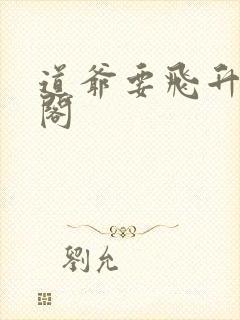 道爺要飛升
閣
劉允